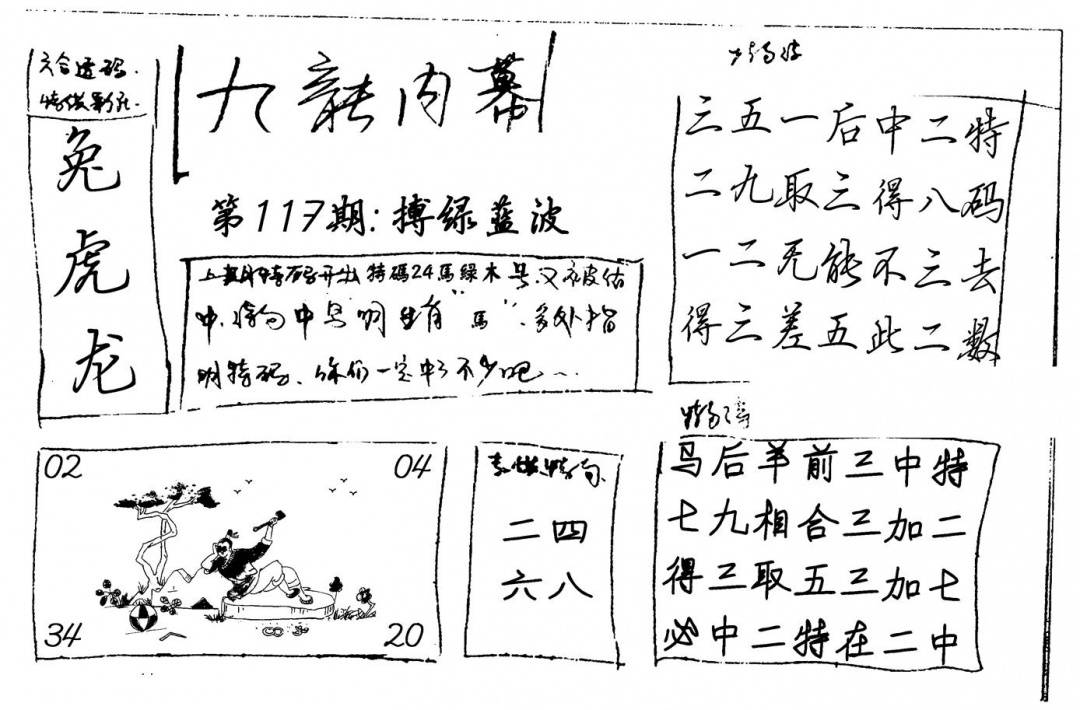 六合透码
兔
虎
龙
九龍内幕
第117期:搏绿蓝波
上期特码开出特碼24馬綠木号,又被估
中,特句中号明里有"馬",多处指
明特码、你们一定中了不少吧
三五一后中二特
二九取三得八码
一二无能不三去
得三差五此二数
02
04
34
20
二四
六八
马后羊前三中特
七九相合三加二
得三取五三加七
必中二特在二中